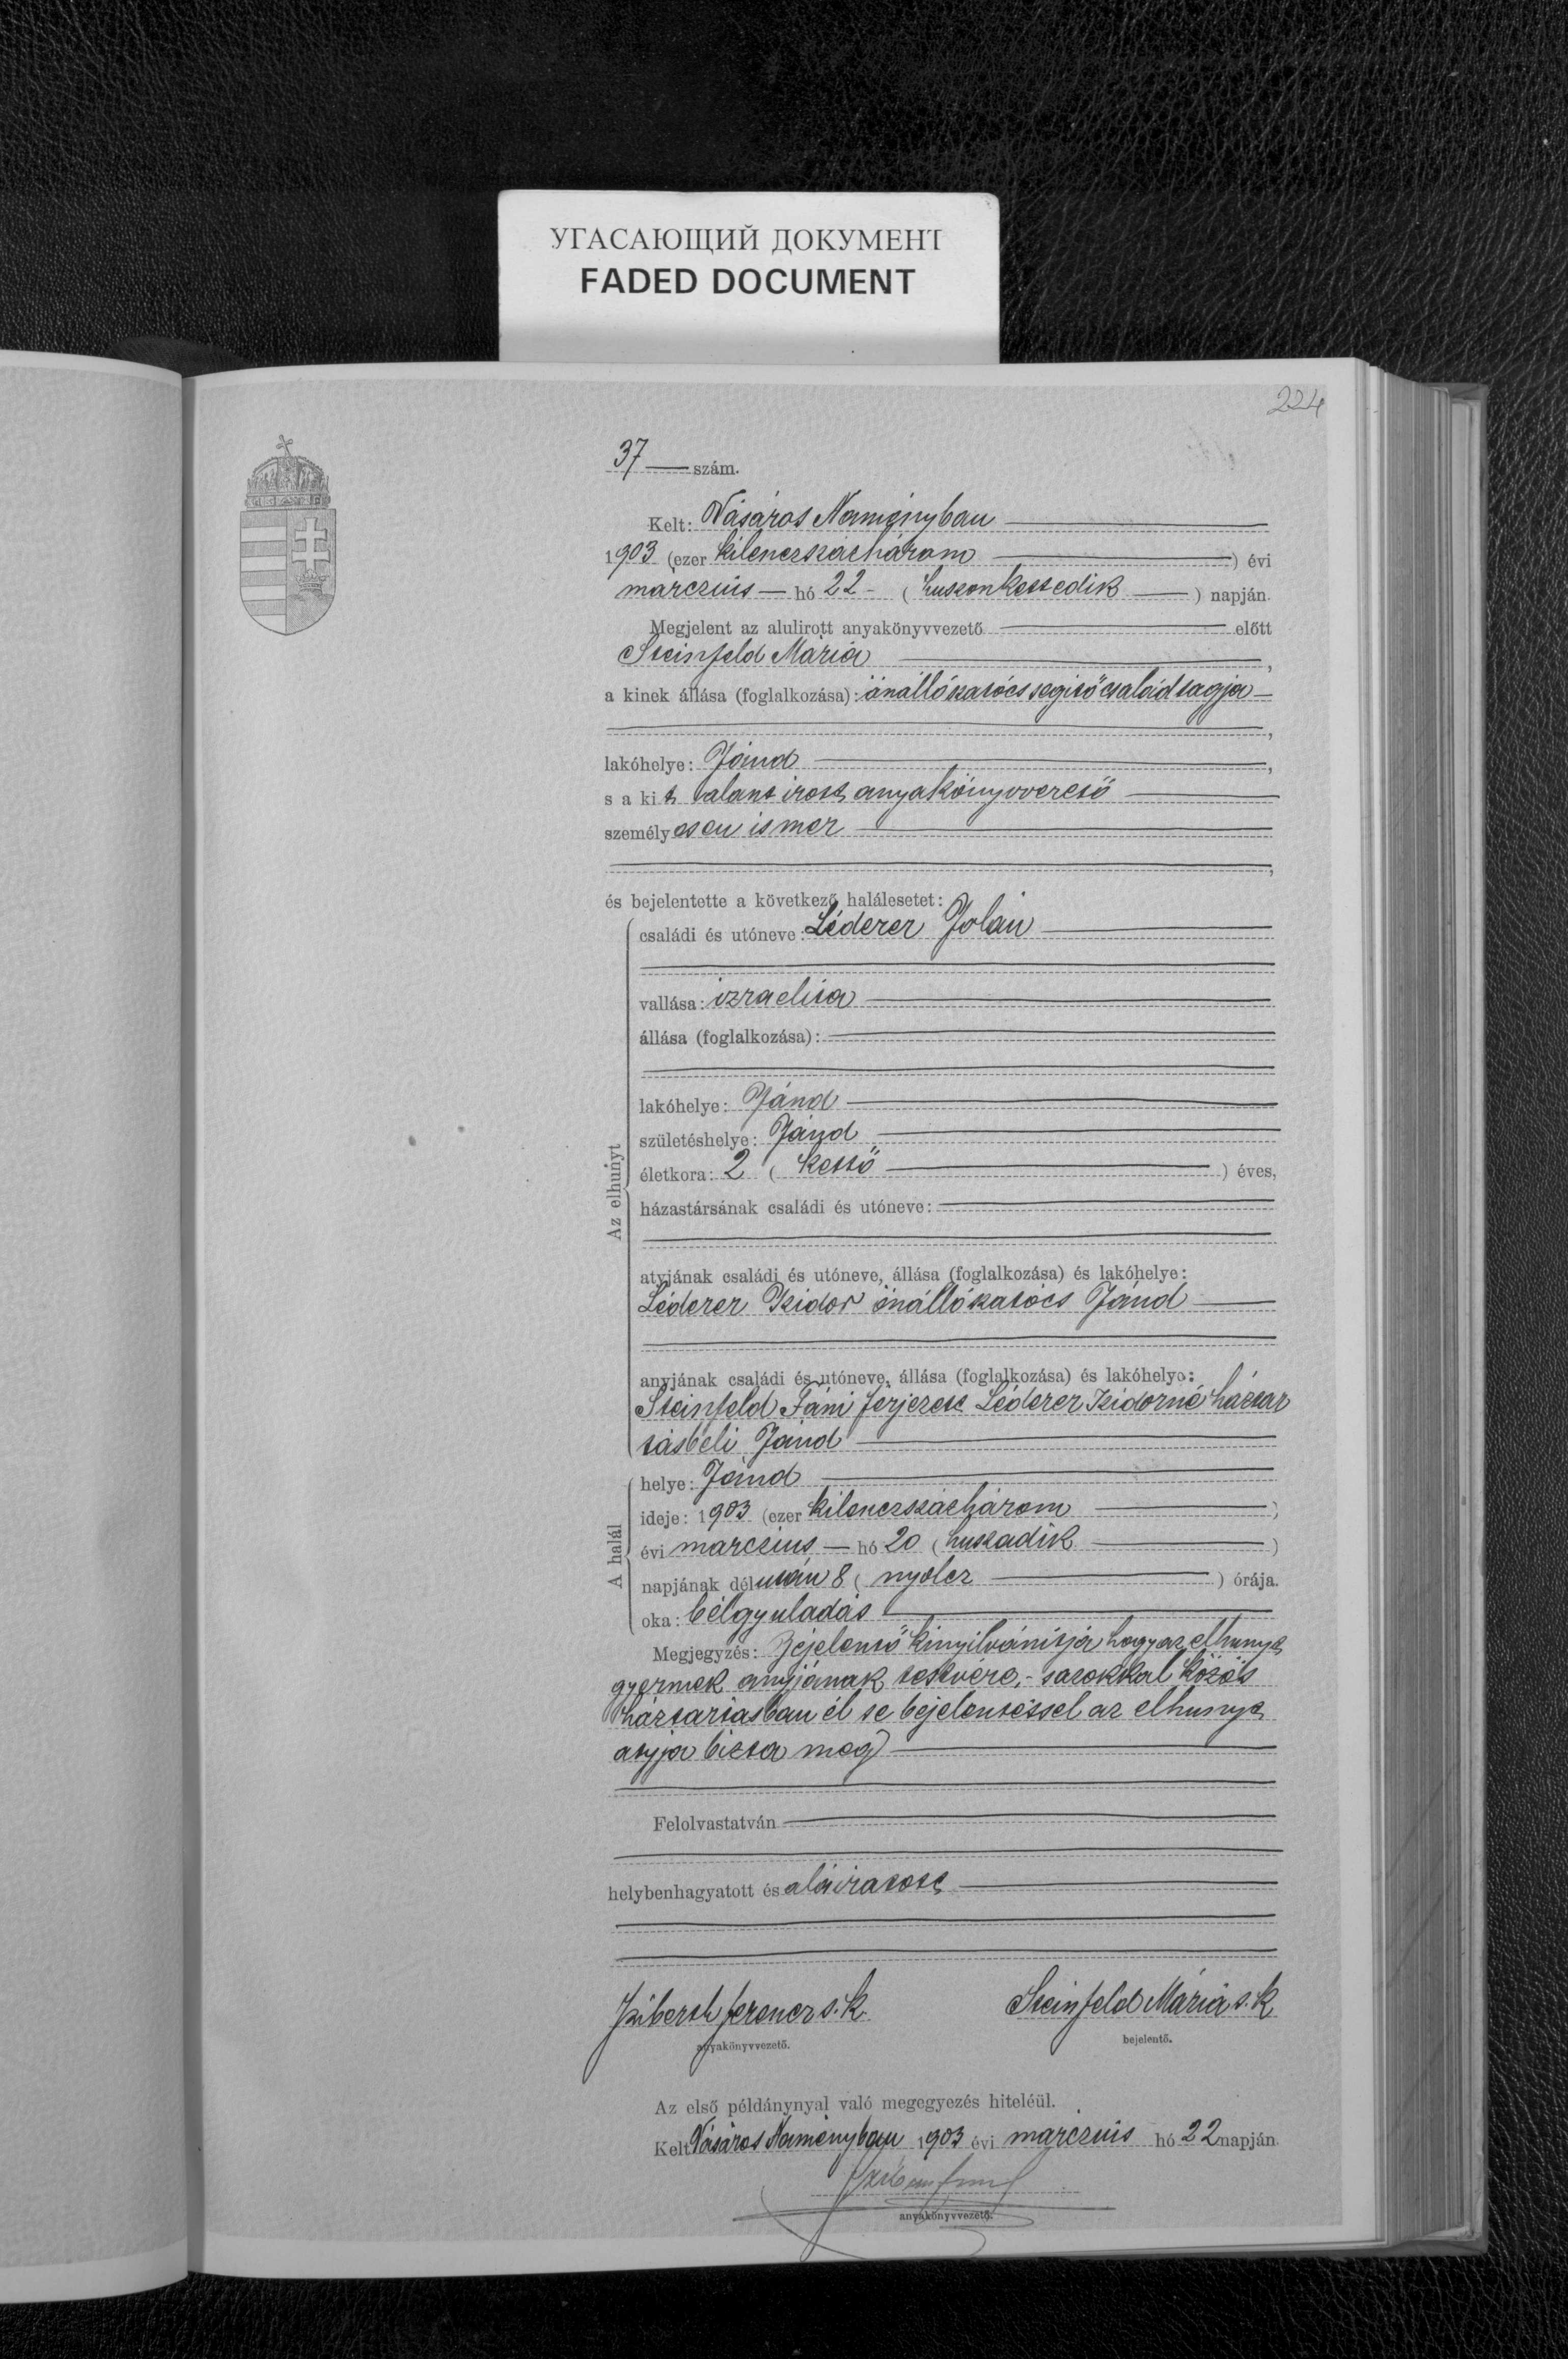 УГАСАЮЩИЙ ДОКУМЕНТ
FADED DOCUMENT
224
37 szám.
Kelt: Vásáros Naményban
1903 (ezer kilenczszázhárom) évi
márczius hó 22 (huszonkettedik) napján.
Megjelent az alulirott anyakönyvvezető előtt
Steinfeld Mária,
a kinek állása (foglalkozása): önálló szatócs segitő családtagja
,
lakóhelye: Jánd,
s a kit valant irott anyakönyvvezető
személyesen ismer
,
és bejelentette a következő halálesetet:
Az elhunyt
családi és utóneve: Léderer Jolán
vallása: izraelita
állása (foglalkozása):
lakóhelye: Jánd
születéshelye: Jánd
életkora: 2 (kettő) éves,
házastársának családi és utóneve:
atyjának családi és utóneve, állása (foglalkozása) és lakóhelye:
Léderer Izidor önálló szatócs Jánd
anyjának családi és utóneve, állása (foglalkozása) és lakóhelye:
Steinfeld Fáni férjezett Léderer Izidorné háztar
tásbeli Jánd
A halál
helye: Jánd
ideje: 1903 (ezer kilenczszázhárom)
évi márczius hó 20 (huszadik)
napjának délután 8 (nyolcz) órája.
oka: bélgyuladás
Megjegyzés: Bejelentő kinyilvánitja hogy az elhunyt
gyermek anyjának testvére, - azokkal közös
háztartásban él s e bejelentéssel az elhunyt
atyja bizta meg
Felolvastatván
helybenhagyatott és aláiratott
Ferencz s. k. Steinfeld Mária s. k
anyakönyvvezető. bejelentő.
Az első példánynyal való megegyezés hiteléül.
Kelt Vásáros Naményban 1903 évi márczius hó 22 napján.
anyakönyvvezető.